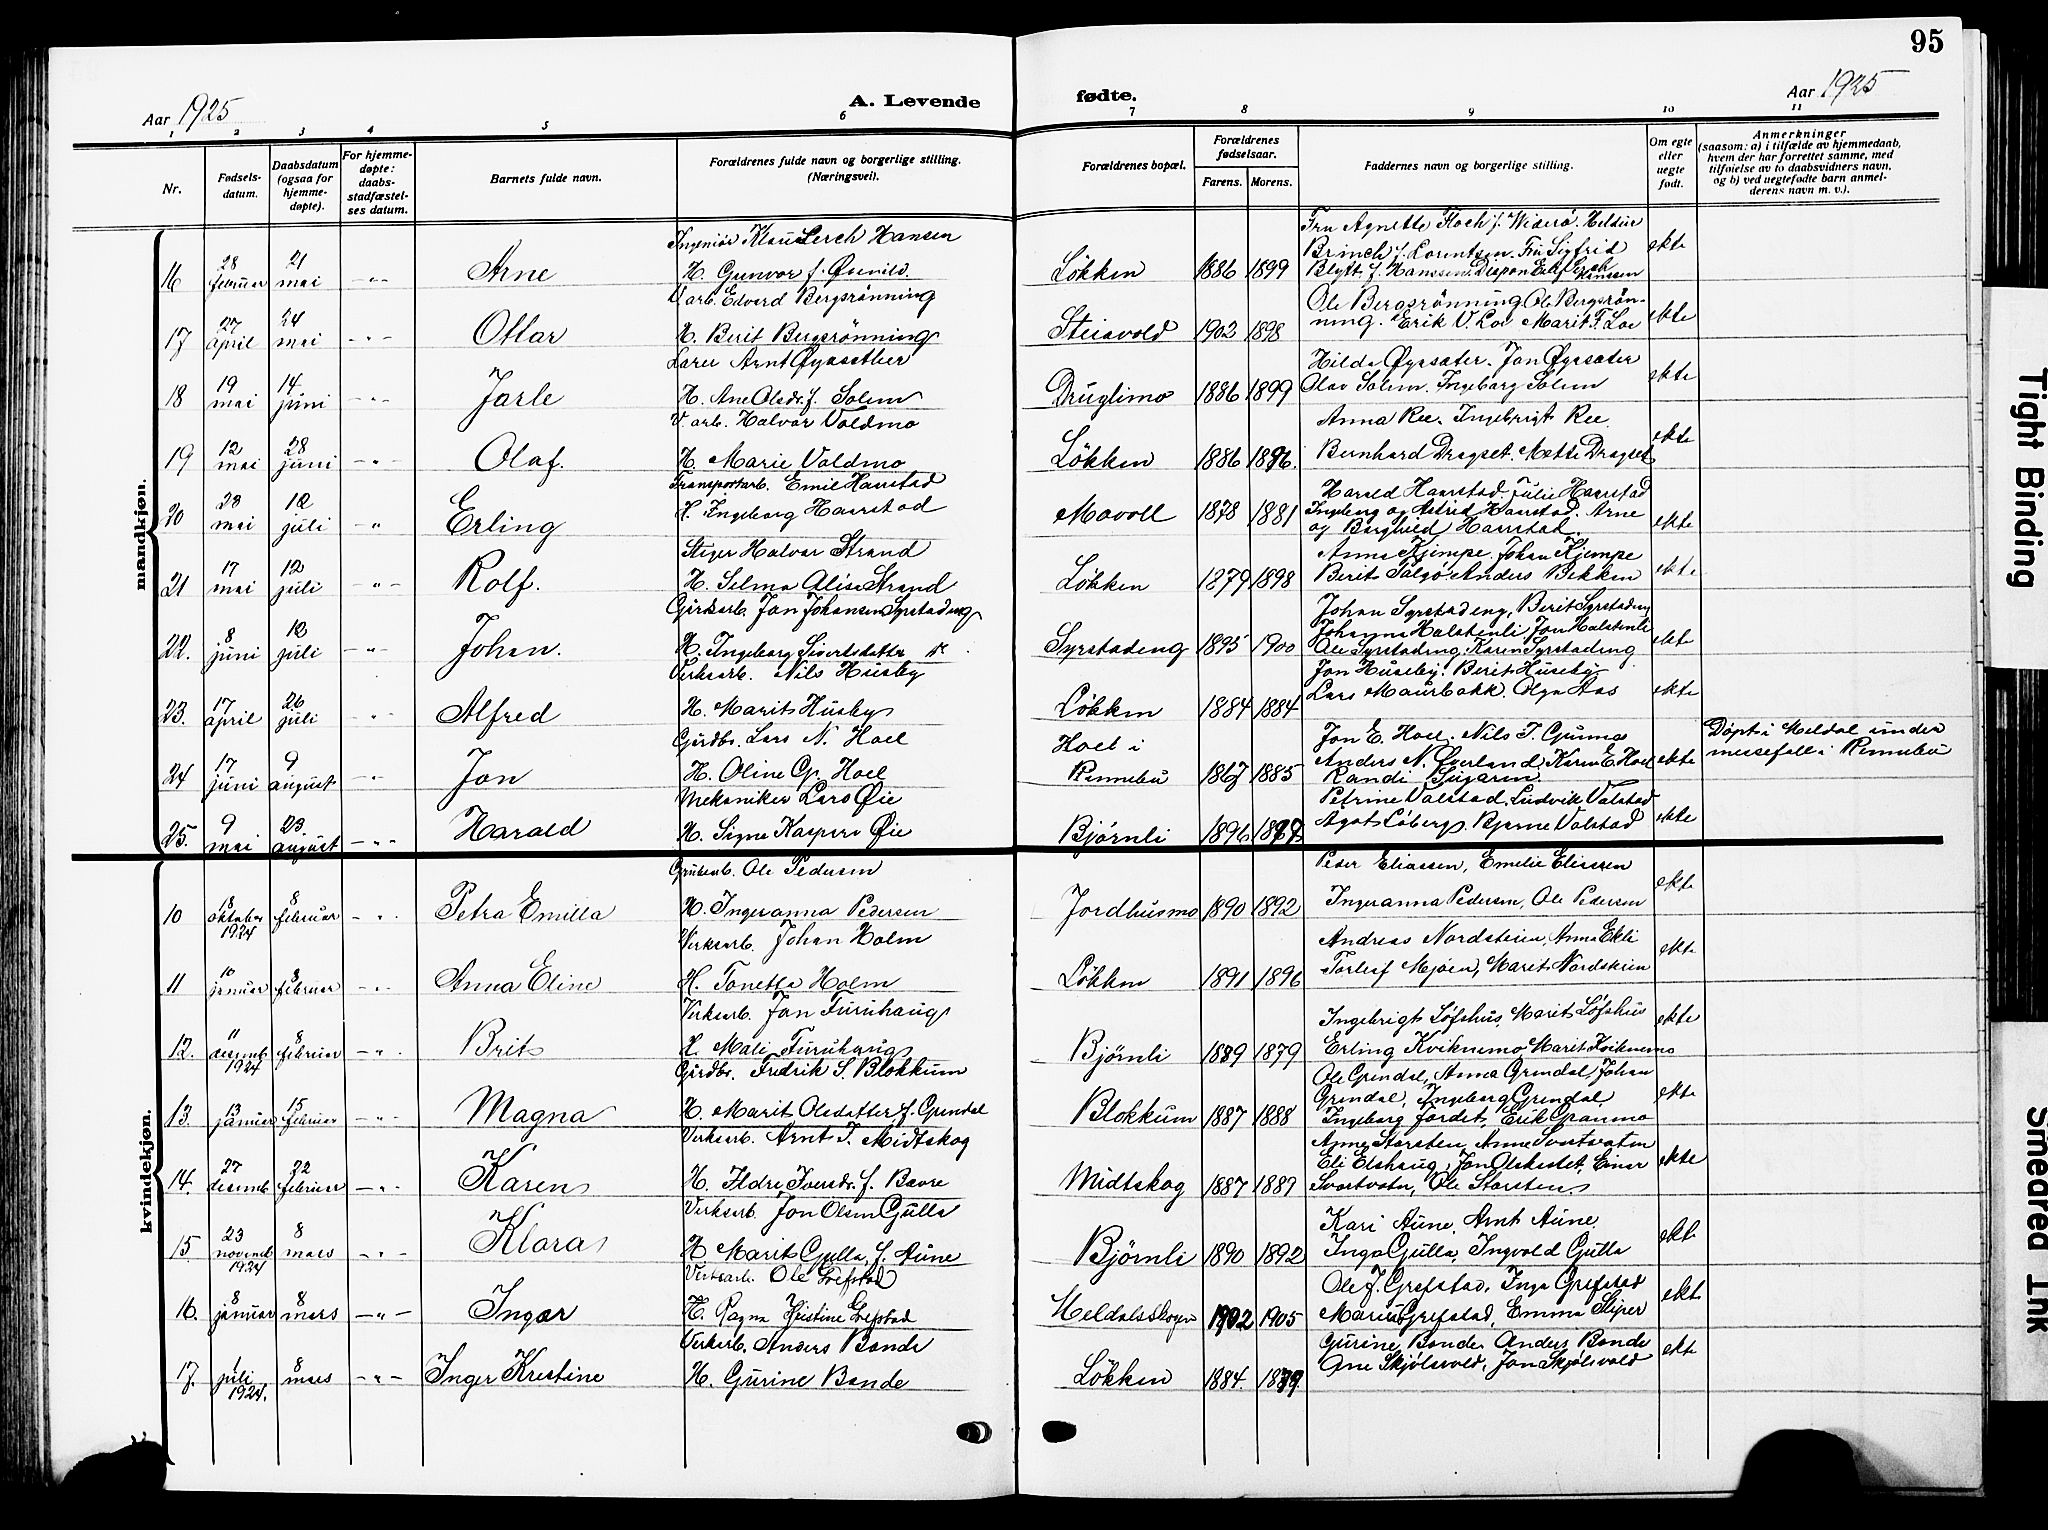 95
Aar 1925
A. Levende fødte.
Aar 1925
1 2 3 4 5 6 7 8 9 10 11
Nr.
Fødsels-
datum.
Daabsdatum
(ogsaa for
hjemme-
døpte).
For hjemme-
døpte:
daabs-
stadfæstel-
ses datum.
Barnets fulde navn.
Forældrenes fulde navn og borgerlige stilling.
(Næringsvei).
Forældrenes bopæl.
Forældrenes
fødselsaar.
Farens. Morens.
Faddernes navn og borgerlige stilling.
Om egte
eller
uegte
født.
Anmerkninger
(saasom: a) i tilfælde av hjemmedaab,
hvem der har forrettet samme, med
tilføielse av to daabsvidners navn,
og b) ved uegtefødte barn anmel-
derens navn m. v.).
mandkjøn.
16 28 februar 21 mai -"- Arne
Ingeniör Klaus Lerch Hansen
H. Gunvor f.
Løkken 1886 1899
Fru Agnette Floch f. Wiserö. Hildur
Brinch f. Lorentsen. Fru Sigfrid
Blytt f. Hanssen. Erik Lerch Hanssen
ekte
17 27 april 24 mai -"- Ottar
V. arb. Edvard Bergsrönning
H. Berit Bergsrönning
Steisvold 1902 1898
Ole Bergsrönning Ole Bergsrön-
ning. Erik V. Loe Marit F. Loe
ekte
18 19 mai 14 juni -"- Jarle
Lærer Arnt Øyasæther
H. Ane Olsdr. f. Solem
Druglimo 1886 1899
Hilda Øyasæter. Jon Øyasæter
Olav Solem. Ingeborg Solem
ekte
19 12 mai 28 juni -"- Olaf.
V. arb. Halvor Voldmo
H. Marie Voldmo
Løkken 1886 1886.
Anna Ree. Ingebrigt Ree.
Bernhard Dragset. Mette Dragset
ekte
20 23 mai 12 juli -"- Erling
Transportarb. Emil Haarstad
H. Ingeborg Haarstad
Movoll 1878 1881
Harald Haarstad. Julie Haarstad
Ingeborg og Astrid Haarstad. Arne
og Borghild Haarstad.
ekte
21 17 mai 12 juli -"- Rolf.
Stiger Halvor Strand
H. Selma Alise Strand
Løkken 1879 1898
Anna Kjempe. Johan Kjempe
Berit Solgö Anders Bekken
ekte
22. 8 juni 12 juli -"- Johan.
Gårdarb. Jon Johansen Syrstadeng
H. Ingeborg Sivertsdatter
Syrstadeng 1895 1900
Johan Syrstadeng, Berit Syrstadeng
Johanna Halstenli Jon Halstenli
Ole Syrstadeng, Karen Syrstadeng
ekte
23. 17 april 26 juli -"- Alfred
Verksarb. Nils Husby
H. Marit Husby
Løkken 1884 1884
Jon Huseby. Berit Huseby
Lars Maurbakk. Olga Aas
ekte
24 17 juni 9 august -"- Jon
Gårdbr. Lars N. Hoel
H. Oline G. Hoel
Hoel i
Rennebu 1867 1885
Jon E. Hoel. Nils T. Gunnes
Anders N. Överland Karen E. Hoel
Randi
ekte
Døpt i Meldal under
messefall i Rennebu
25. 9 mai 23. august -"- Harald
Mekaniker Lars Øie
H. Signe Kaspara Øie
Bjørnli 1896
Petrine Valstad. Ludvik Valstad
Agot Löberg. Bjarne Valstad
ekte
kvindekjøn.
10 18 oktober 1924 8 februar -"- Petra Emilla
Grubearb. Ole Pedersen
H. Ingeranna Pedersen
Jordhusmo 1890 1892
Peder Eliassen, Emelie Eliassen
Ingeranna Pedersen, Ole Pedersen
ekte
11 10 januar 8 februar -"- Anna Eline
Verksarb. Johan Holm
H. Tonetta Holm
Løkken 1891 1896
Andreas Nordsteien, Anna Ekli
Torleif Mjøen, Marit Nordstein
ekte
12. 11 desemb. 1924 8 februar -"- Brit
Verksarb. Jon Furuhaug
H. Mali Furuhaug
Bjørnli 1889 1879
Ingebrigt Løfshus, Marit Løfshus
Erling Kviknemo Marit Kviknemo
ekte
13. 13 januar 15 februar -"- Magna
Gårdbr. Fredrik S. Blokkum
H. Marit Olsdatter f. Grendal
Blokkum 1887 1888
Ole Grendal, Anna Grendal Johan
Grendal, Ingeborg Grendal
Ingeborg Fordet, Erik Granmo
ekte
14. 27 desemb. 22 februar -"- Karen
Verksarb. Arnt I. Midtskog
H. Ildri Iversdr. f. Bavre
Midtskog 1887 1889
Anne Storsten, Anne Svartvatn
Eli Elshaug, Jon Olskastet, Einar
Svartvatn, Ole Storsten
ekte
15. 23 novemb. 1924 8 mars -"- Klara
Verksarb. Jon Olsen Gulla
H. Marit Gulla, f. Aune
Bjørnli 1890 1892
Kari Aune, Arnt Aune.
Inga Gulla, Ingvald Gulla
ekte
16. 8 januar 8 mars -"- Ingar
Verksarb. Ole Grefstad
H. Ragna Kristine Grefstad
Meldalsskogen 1902 1905
Ole J. Grefstad, Inga Grefstad
Marius Grefstad, Emma Sliper
ekte
17. 1 juli 1924. 8 mars -"- Inger Kristine
Verksarb. Anders Bonde
H. Gurine Bonde
Løkken 1884. 1889.
Gurine Bonde Anders Bonde
Ane Skjølsvold, Jon Skjølsvold
ekte
Tight Binding
Smeared Ink